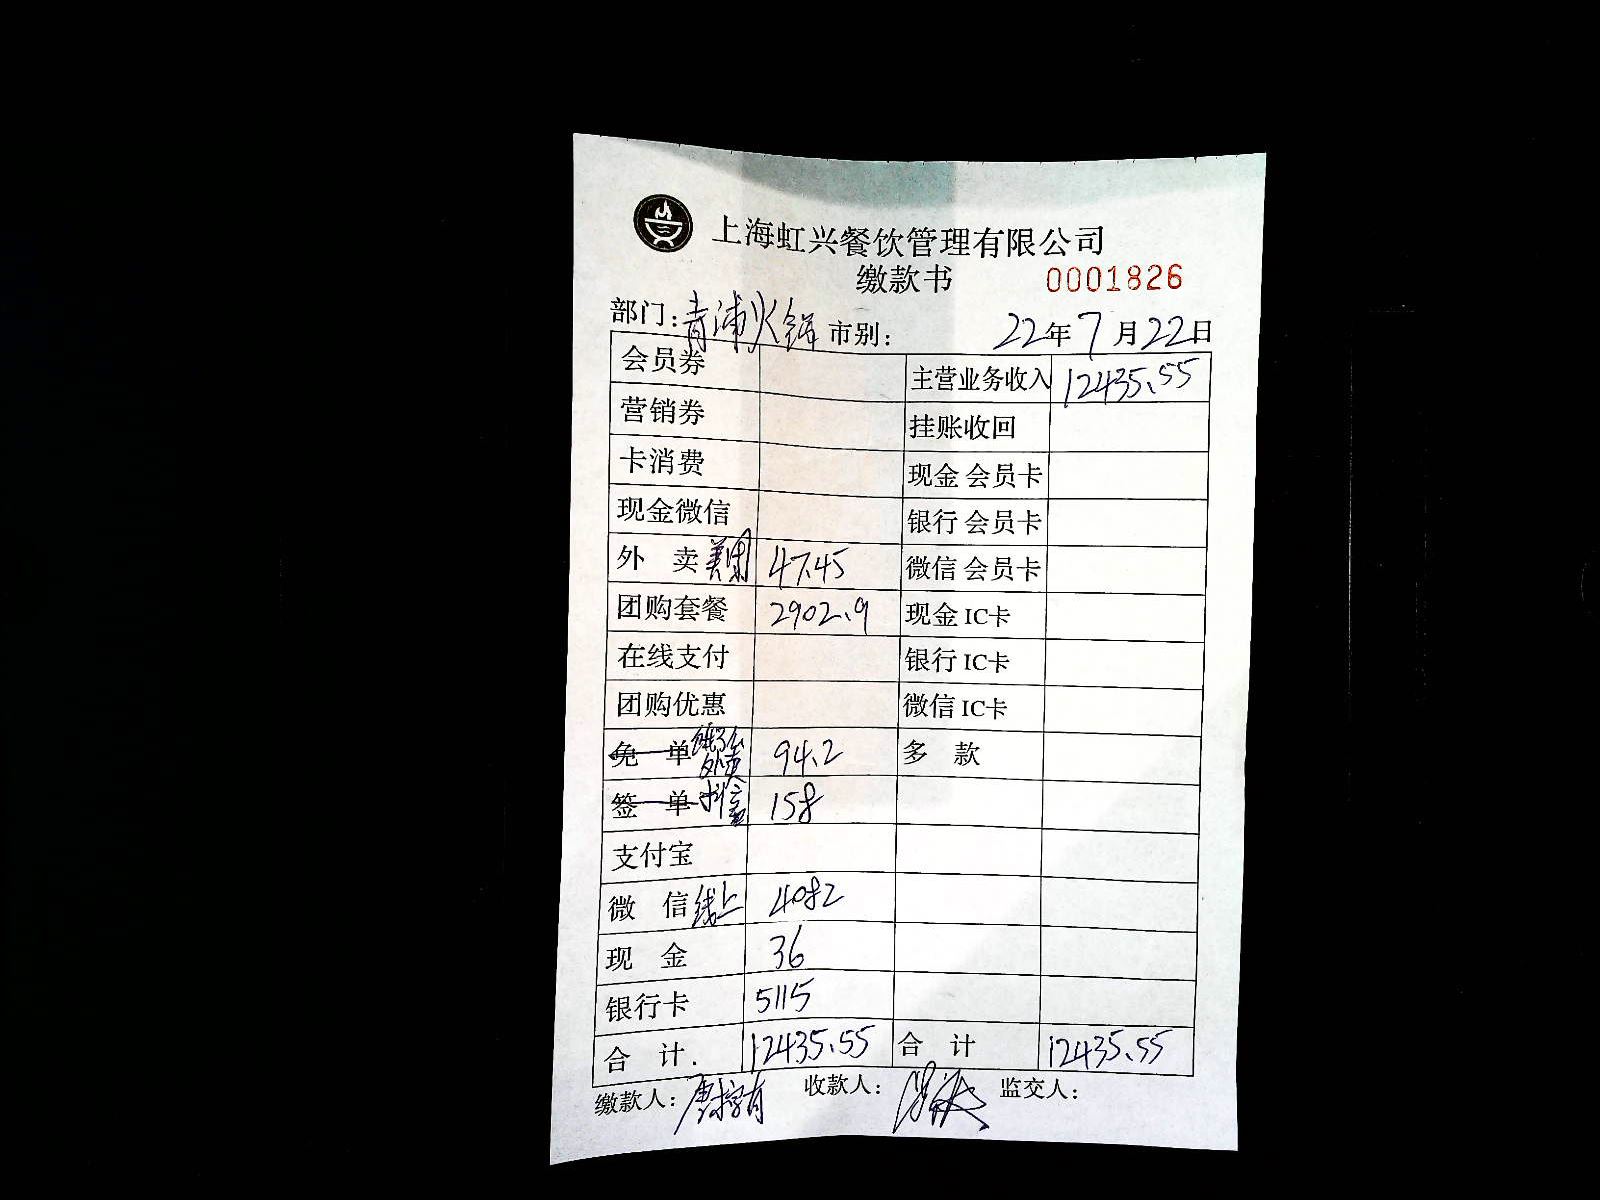 上海虹兴餐饮管理有限公司
缴款书 0001826
部门:青浦火锅 市别: 22年7月22日
会员券 主营业务收入 12435.55
营销券 挂账收回
卡消费 现金 会员卡
现金微信 银行 会员卡
外 卖 美团 47.45 微信 会员卡
团购套餐 2902.9 现金 IC卡
在线支付 银行 IC卡
团购优惠 微信 IC卡
免 单 饿了么外卖 94.2 多 款
签 单 抖音 158
支付宝
微 信 线上 4082
现 金 36
银行卡 5115
合 计. 12435.55 合 计 12435.55
缴款人: 收款人: 监交人: